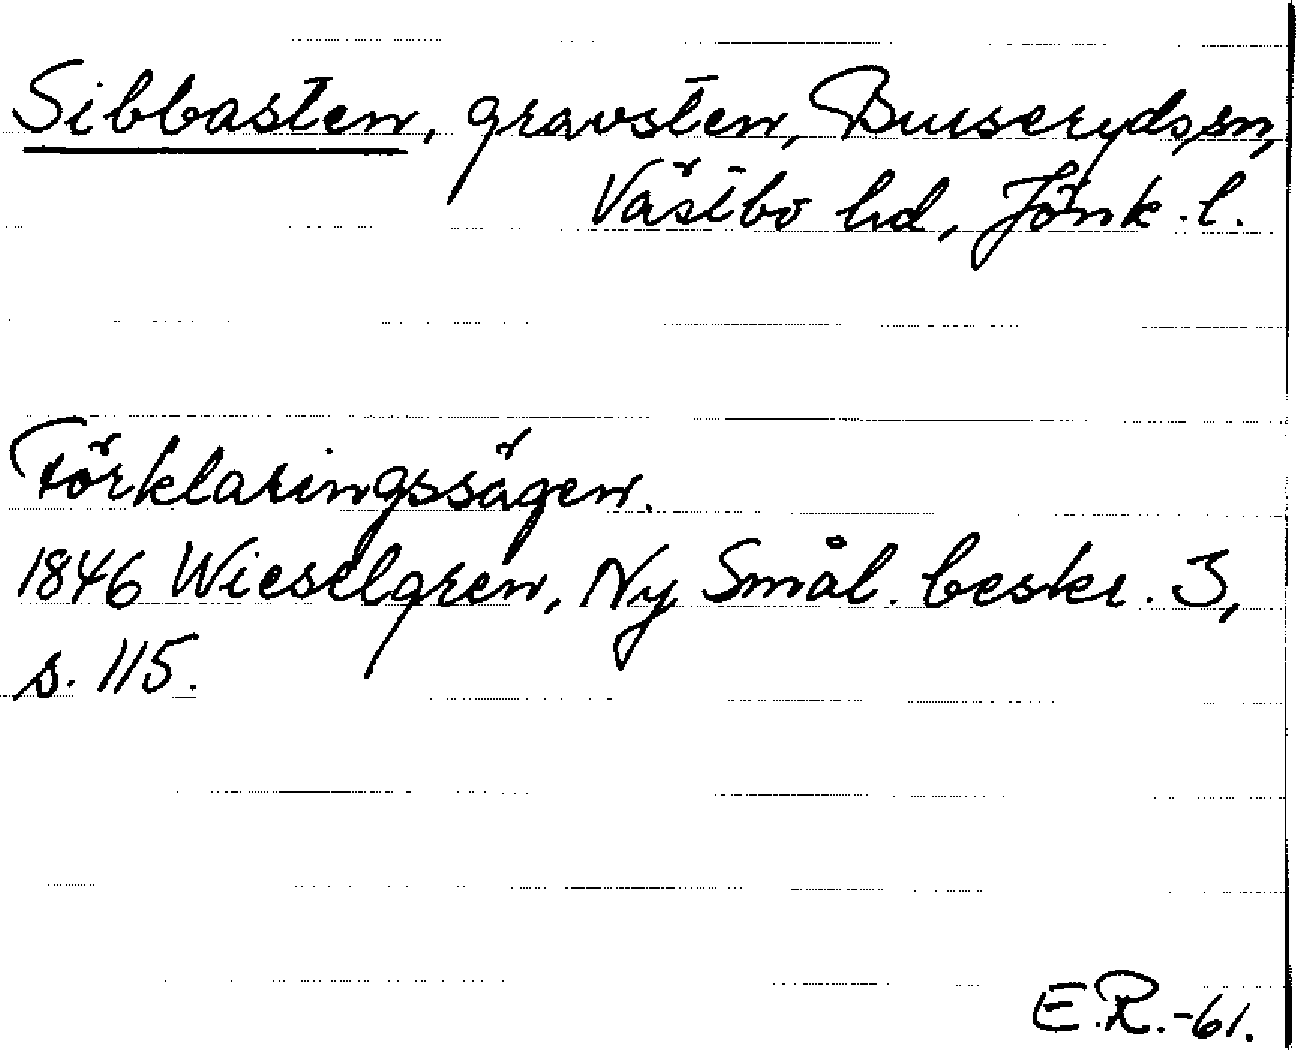 Sibbasten, gravsten, Burseryds sn,
Västbo hd, Jönk. l.
Förklaringssägen.
1846 Wieselgren, Ny Smål. beskr. 3,
s. 115.
E.R.-61.